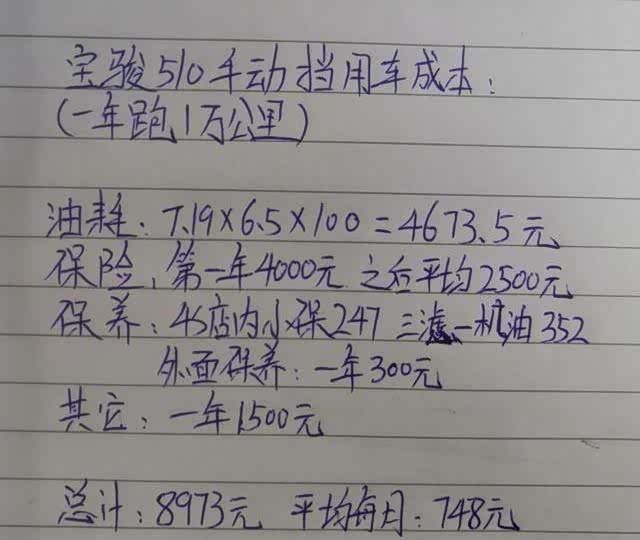 宝骏510手动挡用车成本:
(一年跑1万公里)
油耗: 7.19×6.5×100=4673.5元
保险, 第一年4000元 之后平均2500元
保养: 4S店内小保247 三滤一机油352
外面保养: 一年300元
其它: 一年1500元
总计: 8973元 平均每月: 748元